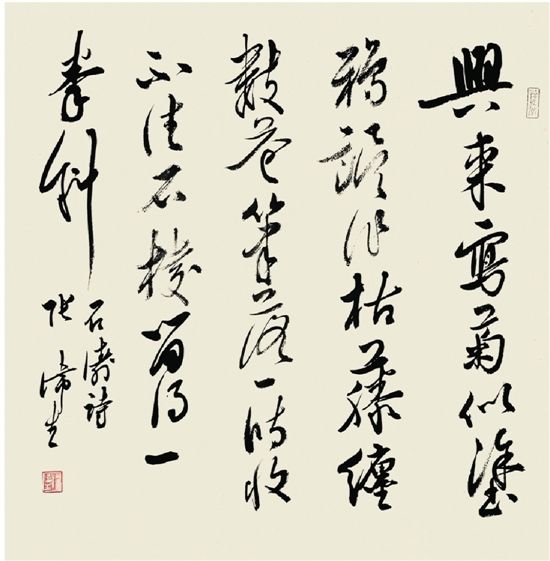 興來寫菊似塗
鴉誤作枯藤纏
數花筆落一時收
不住石棱留得一
拳斜
石濤詩
張